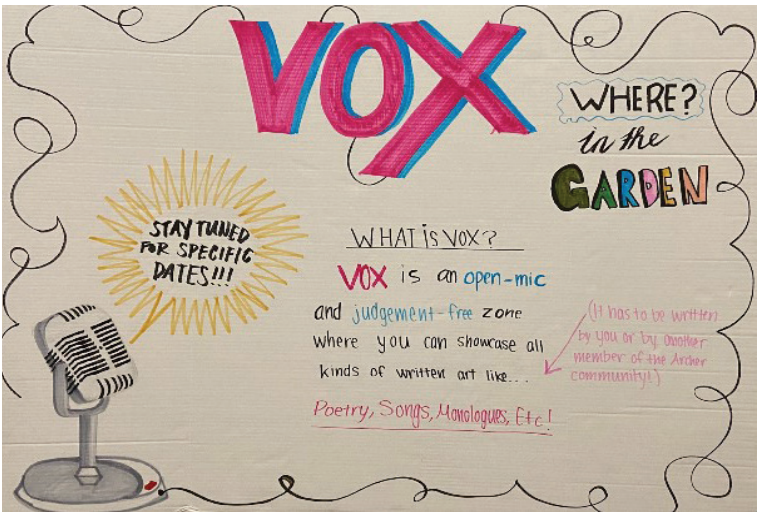 VOX
WHERE?
in the
GARDEN
STAY TUNED
FOR SPECIFIC
DATES!!!
WHAT iS VOX?
VOX is an open-mic
and judgement-free zone
where you can showcase all
kinds of written art like...
Poetry, Songs, Monologues, Etc!
(It has to be written
by you or by another
member of the Archer
community!)